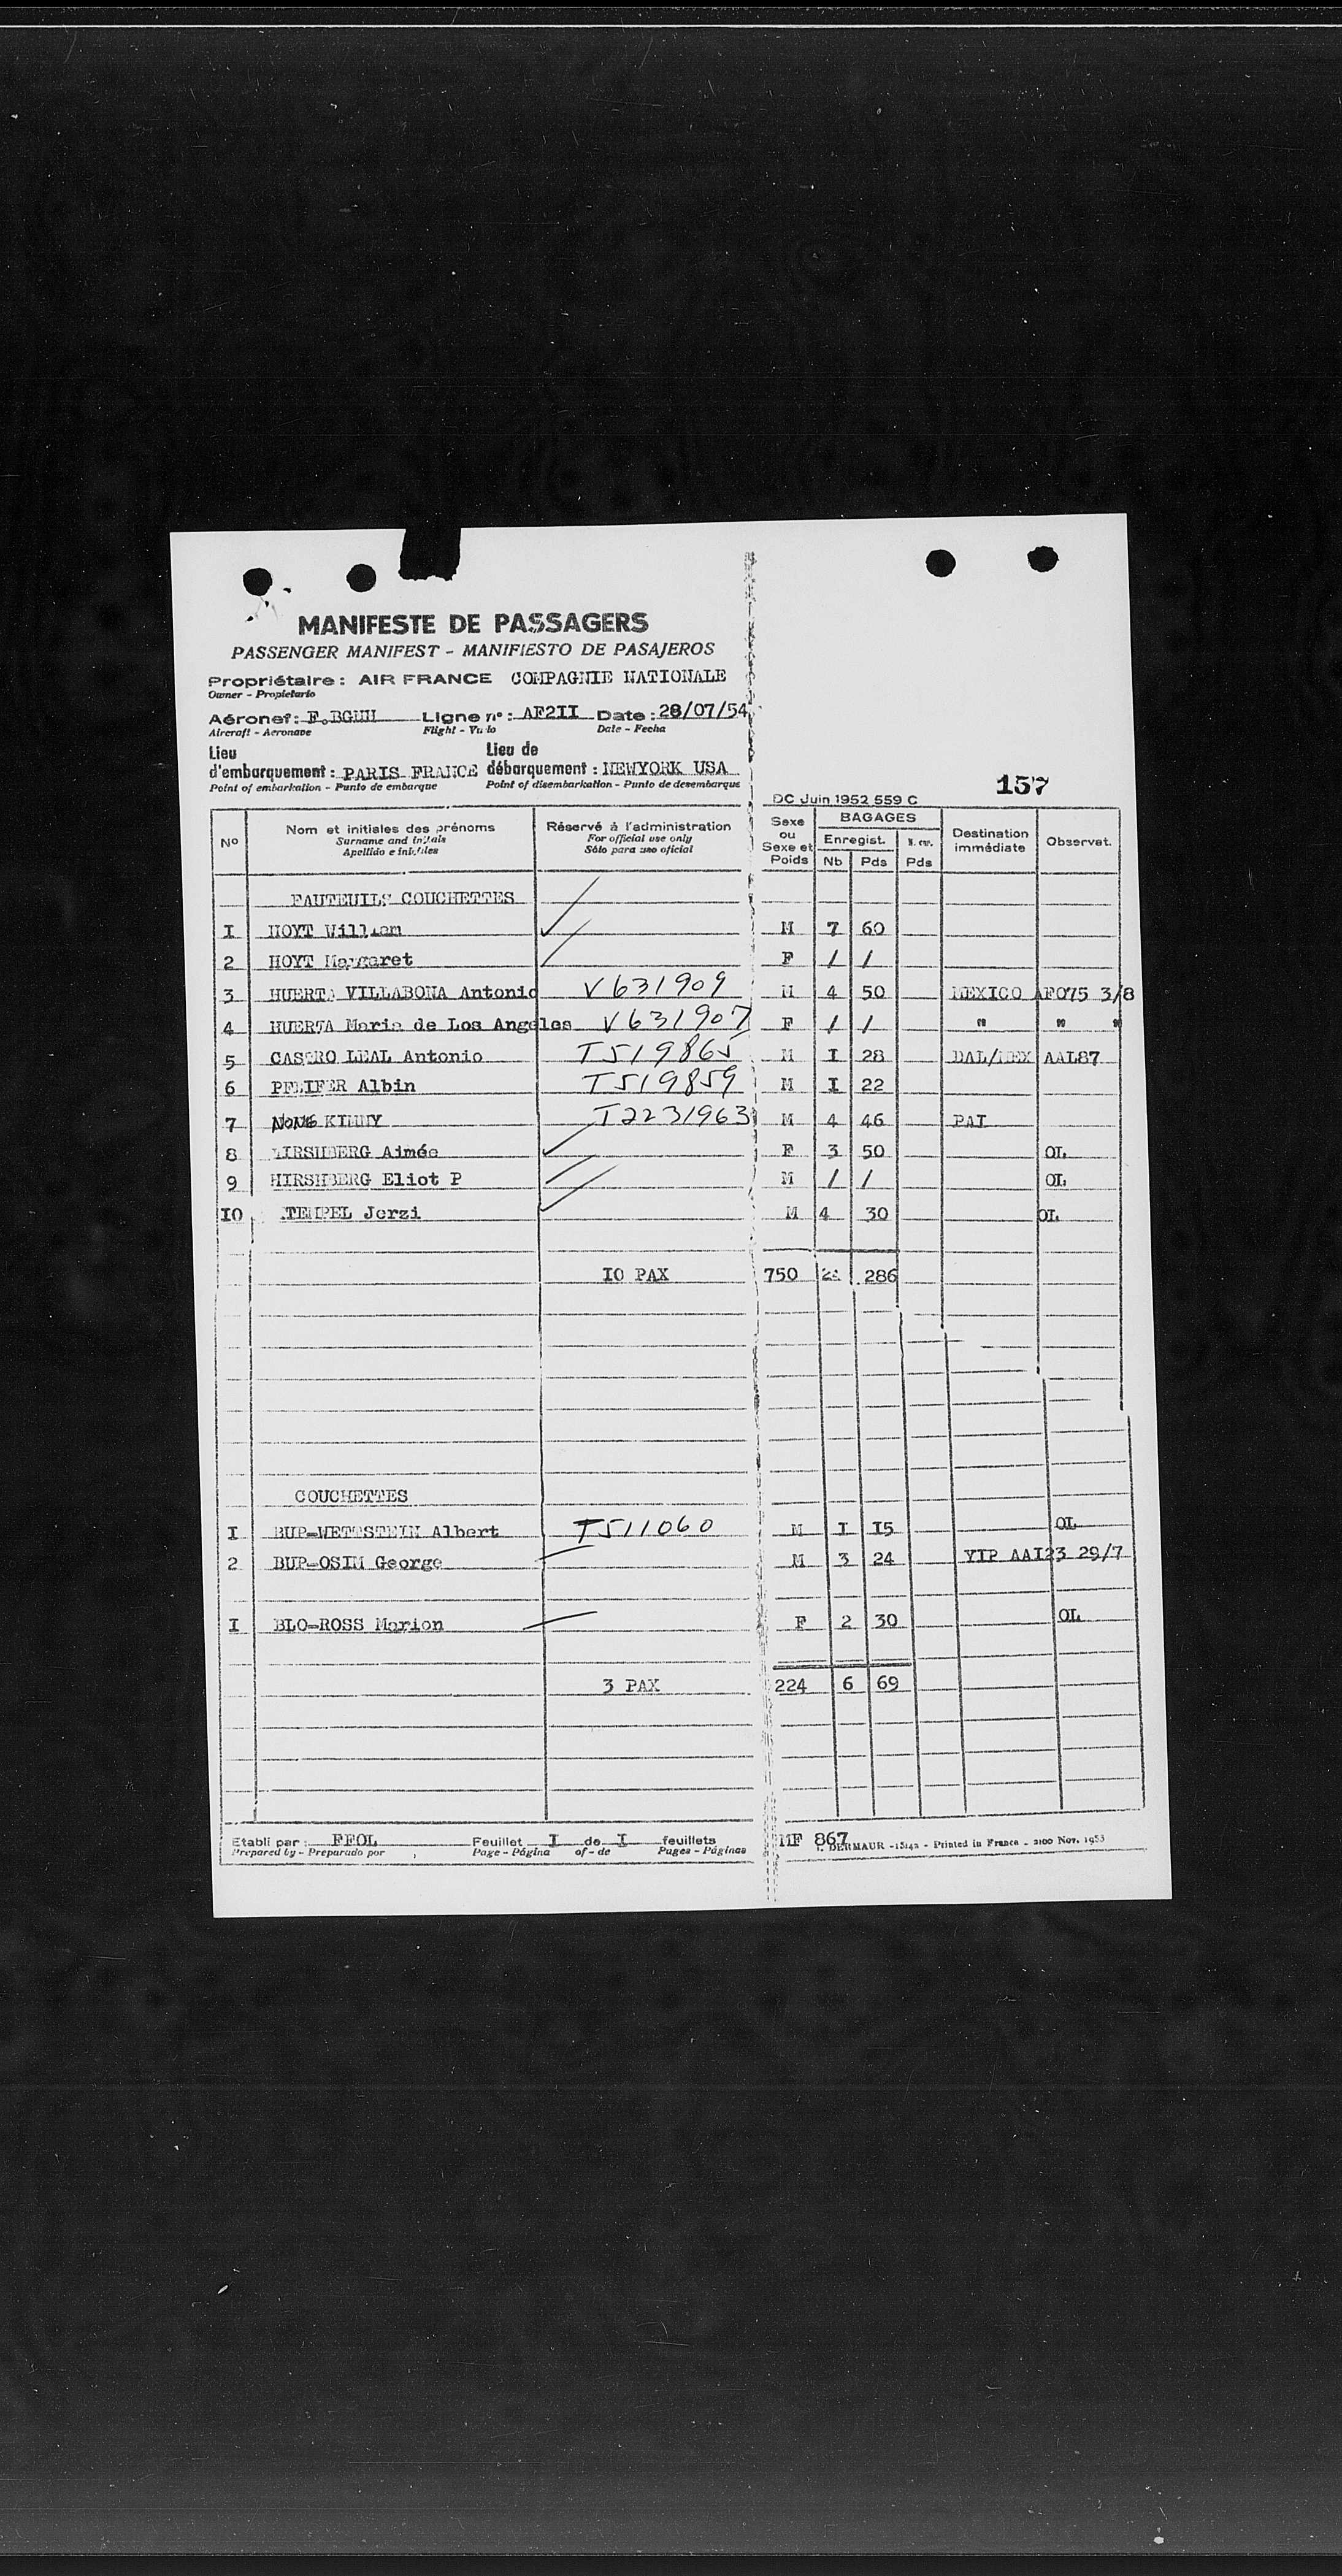 MANIFESTE DE PASSAGERS
PASSENGER MANIFEST - MANIFIESTO DE PASAJEROS
Propriétaire : AIR FRANCE COMPAGNIE NATIONALE
Owner - Propietario
Aéronef : F.BGNN Ligne nº : AF2II Date : 28/07/54
Aircraft - Aeronave Flight - Vuelo Date - Fecha
Lieu d'embarquement : PARIS FRANCE Lieu de débarquement : NEWYORK USA
Point of embarkation - Punto de embarque Point of disembarkation - Punto de desembarque
157
DC Juin 1952 559 C
Nº Nom et initiales des prénoms Réservé à l'administration Sexe ou Sexe et Poids BAGAGES Enregist. Nb Pds Pds Destination immédiate Observat.
Surname and initials For official use only
Apellido e iniciales Sólo para uso oficial
FAUTEUILS COUCHETTES
I HOYT William M 7 60
2 HOYT Margaret F / /
3 HUERTA VILLABONA Antonio V631909 M 4 50 MEXICO AF075 3/8
4 HUERTA Maria de Los Angeles V631907 F / / " " "
5 CASTRO LEAL Antonio T519865 M I 28 DAL/MEX AAL87
6 PFEIFER Albin T519859 M I 22
7 KIMMY T2231963 M 4 46 PAI
8 HIRSHBERG Aimée F 3 50 OL
9 HIRSHBERG Eliot P M / / OL
IO TEMPEL Jerzi M 4 30 OL
IO PAX 750 286
COUCHETTES
I BUP-WETTSTEIN Albert T511060 M I I5 OL
2 BUP-OSIM George M 3 24 YIP AAI23 29/7
I BLO-ROSS Marion F 2 30 OL
3 PAX 224 6 69
Etabli par : FFOL Feuillet I de I feuillets MF 867
Prepared by - Preparado por Page - Página of - de Pages - Páginas DERMAUR - Printed in France - 2100 Nov. 1953